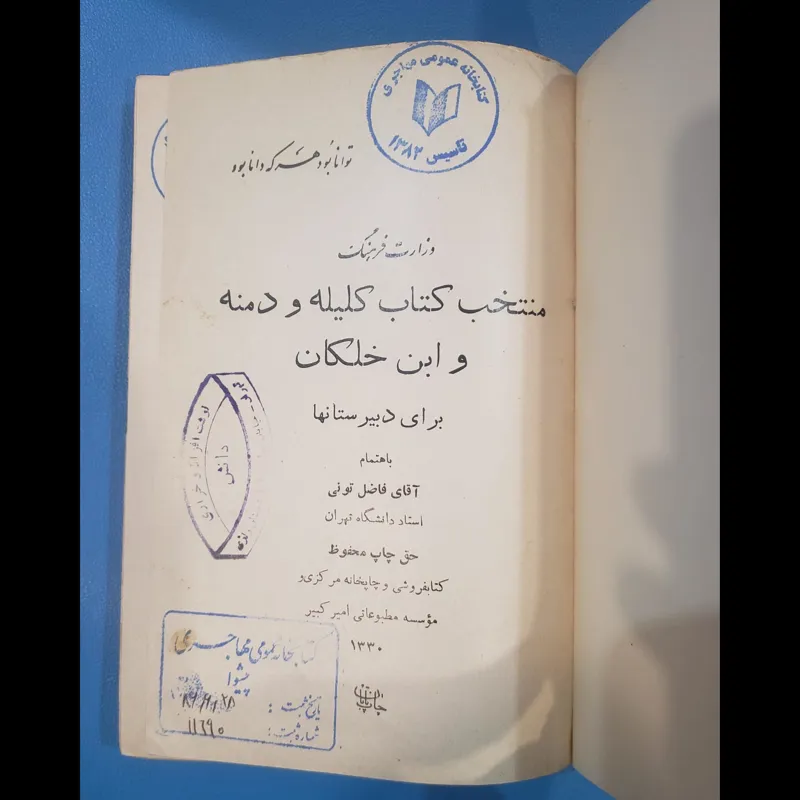 کتابخانه عمومی مهاجری
تاسیس ۱۳۸۲
توانا بود هر که دانا بود
وزارت فرهنگ
منتخب کتاب کلیله و دمنه
و ابن خلکان
برای دبیرستانها
باهتمام
آقای فاضل تونی
استاد دانشگاه تهران
حق چاپ محفوظ
کتابفروشی و چاپخانه مرکزی و
مؤسسه مطبوعاتی امیر کبیر
۱۳۳۰
دانش
نوشت افزار
کتابخانه عمومی مهاجری
پیشوا
تاریخ ثبت :
شماره ثبت : ۱۱۶۹۰